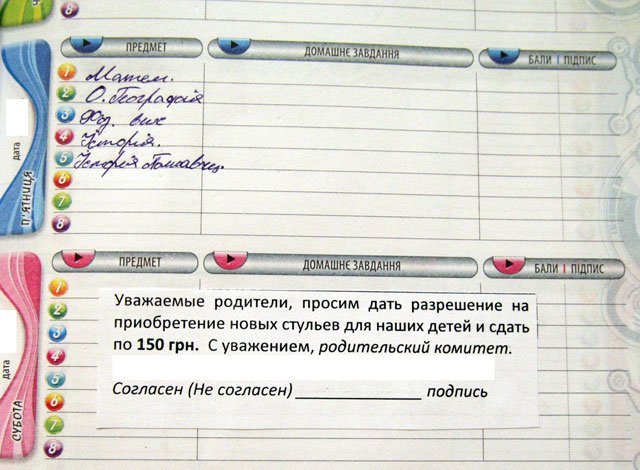 ПРЕДМЕТ ДОМАШНЄ ЗАВДАННЯ БАЛИ І ПІДПИС
дата
П'ЯТНИЦЯ
1 Матем.
2 О. Географія
3 Худ. вих
4 Історія.
5 Історія
6
7
8
ПРЕДМЕТ ДОМАШНЄ ЗАВДАННЯ БАЛИ І ПІДПИС
дата
СУБОТА
1
2
3
4
5
6
7
8
Уважаемые родители, просим дать разрешение на
приобретение новых стульев для наших детей и сдать
по 150 грн. С уважением, родительский комитет.
Согласен (Не согласен) ______________ подпись